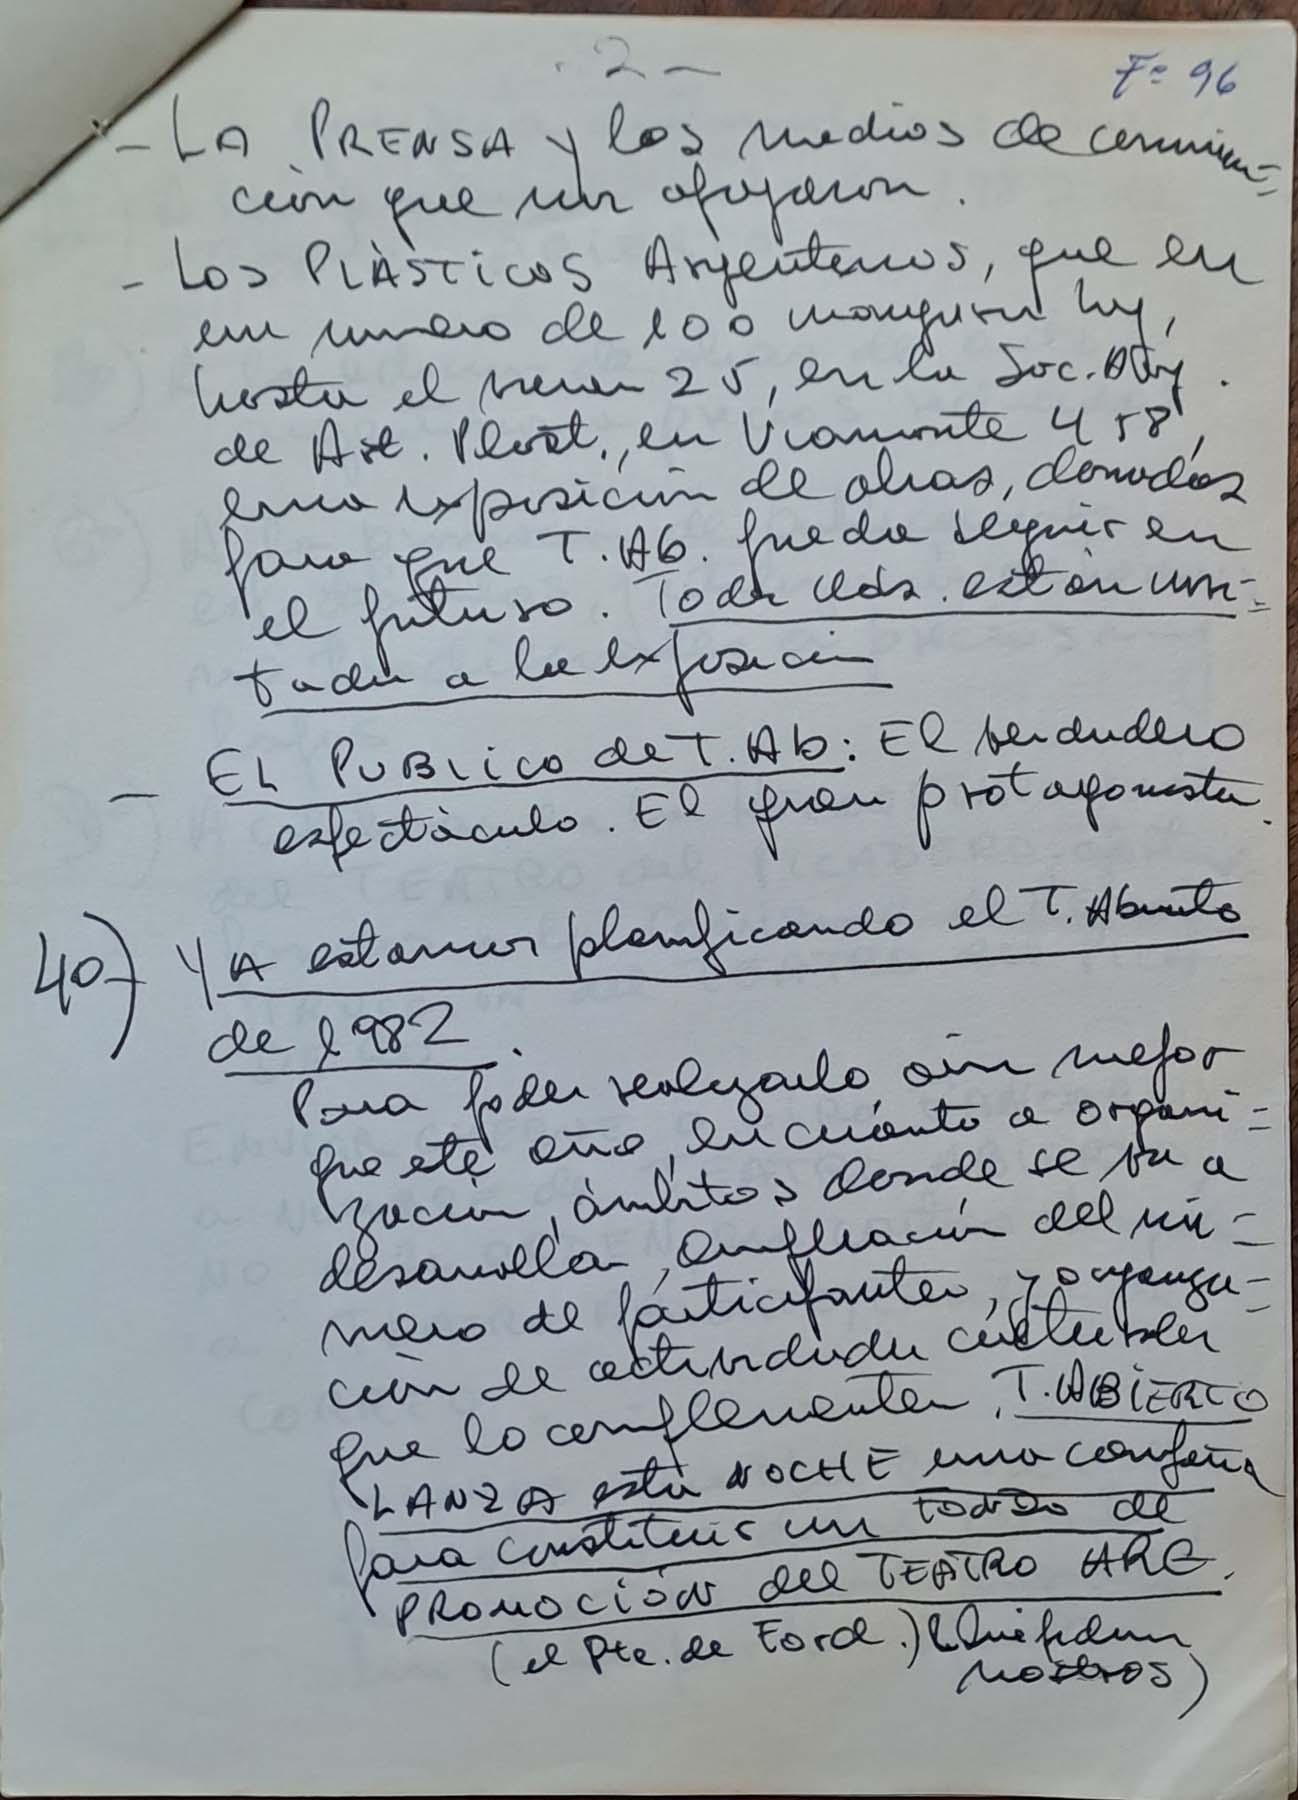 - 2 -
Fº 96
- LA PRENSA y los medios de comunica=
ción que nos apoyaron.
- Los PLÀSTICOS Argentinos, que en
en número de 100 inauguran hoy,
hasta el viernes 25, en la Soc. Arg.
de Art. Plást., en Viamonte 458,
una exposición de obras, donadas
para que T. Ab. pueda seguir en
el futuro. Todos Uds. están invi=
tados a la exposición
- EL PUBLICO de T. Ab: El verdadero
espectáculo. El gran protagonista.
4o-) YA estamos planificando el T. Abierto
de 1982.
Para poder realizarlo aún mejor
que este año, en cuánto a organi=
zación, ámbitos donde se va a
desarrollar, ampliación del nú=
mero de participantes, y organiza=
ción de actividades culturales
que lo complementen, T. ABIERTO
LANZA esta NOCHE una campaña
para constituir un FONDO de
PROMOCIÓN del TEATRO ARG.
(el Pte. de Ford.)
nosotros)